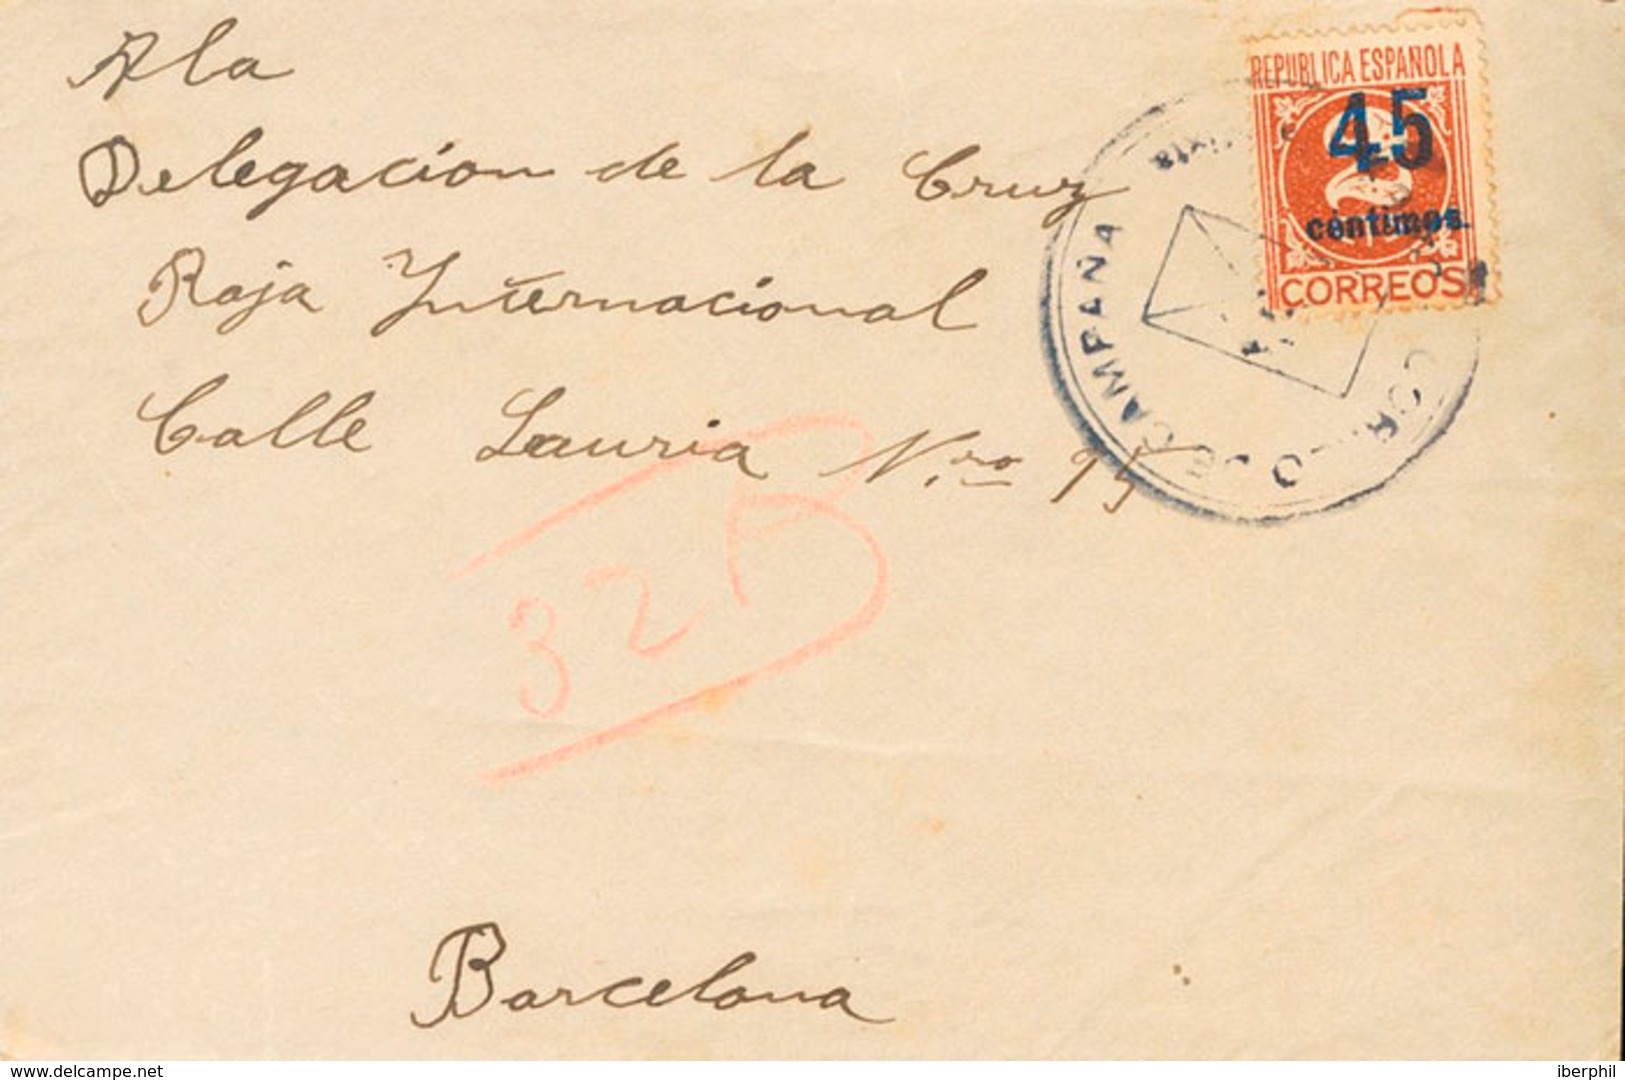 A la
Delegacion de la Cruz
Roja Internacional
Calle Lauria Nro 95
32
Barcelona
REPUBLICA ESPAÑOLA
45
centimos
CORREOS
DE CAMPAÑA
www.delcampe.net
iberphil